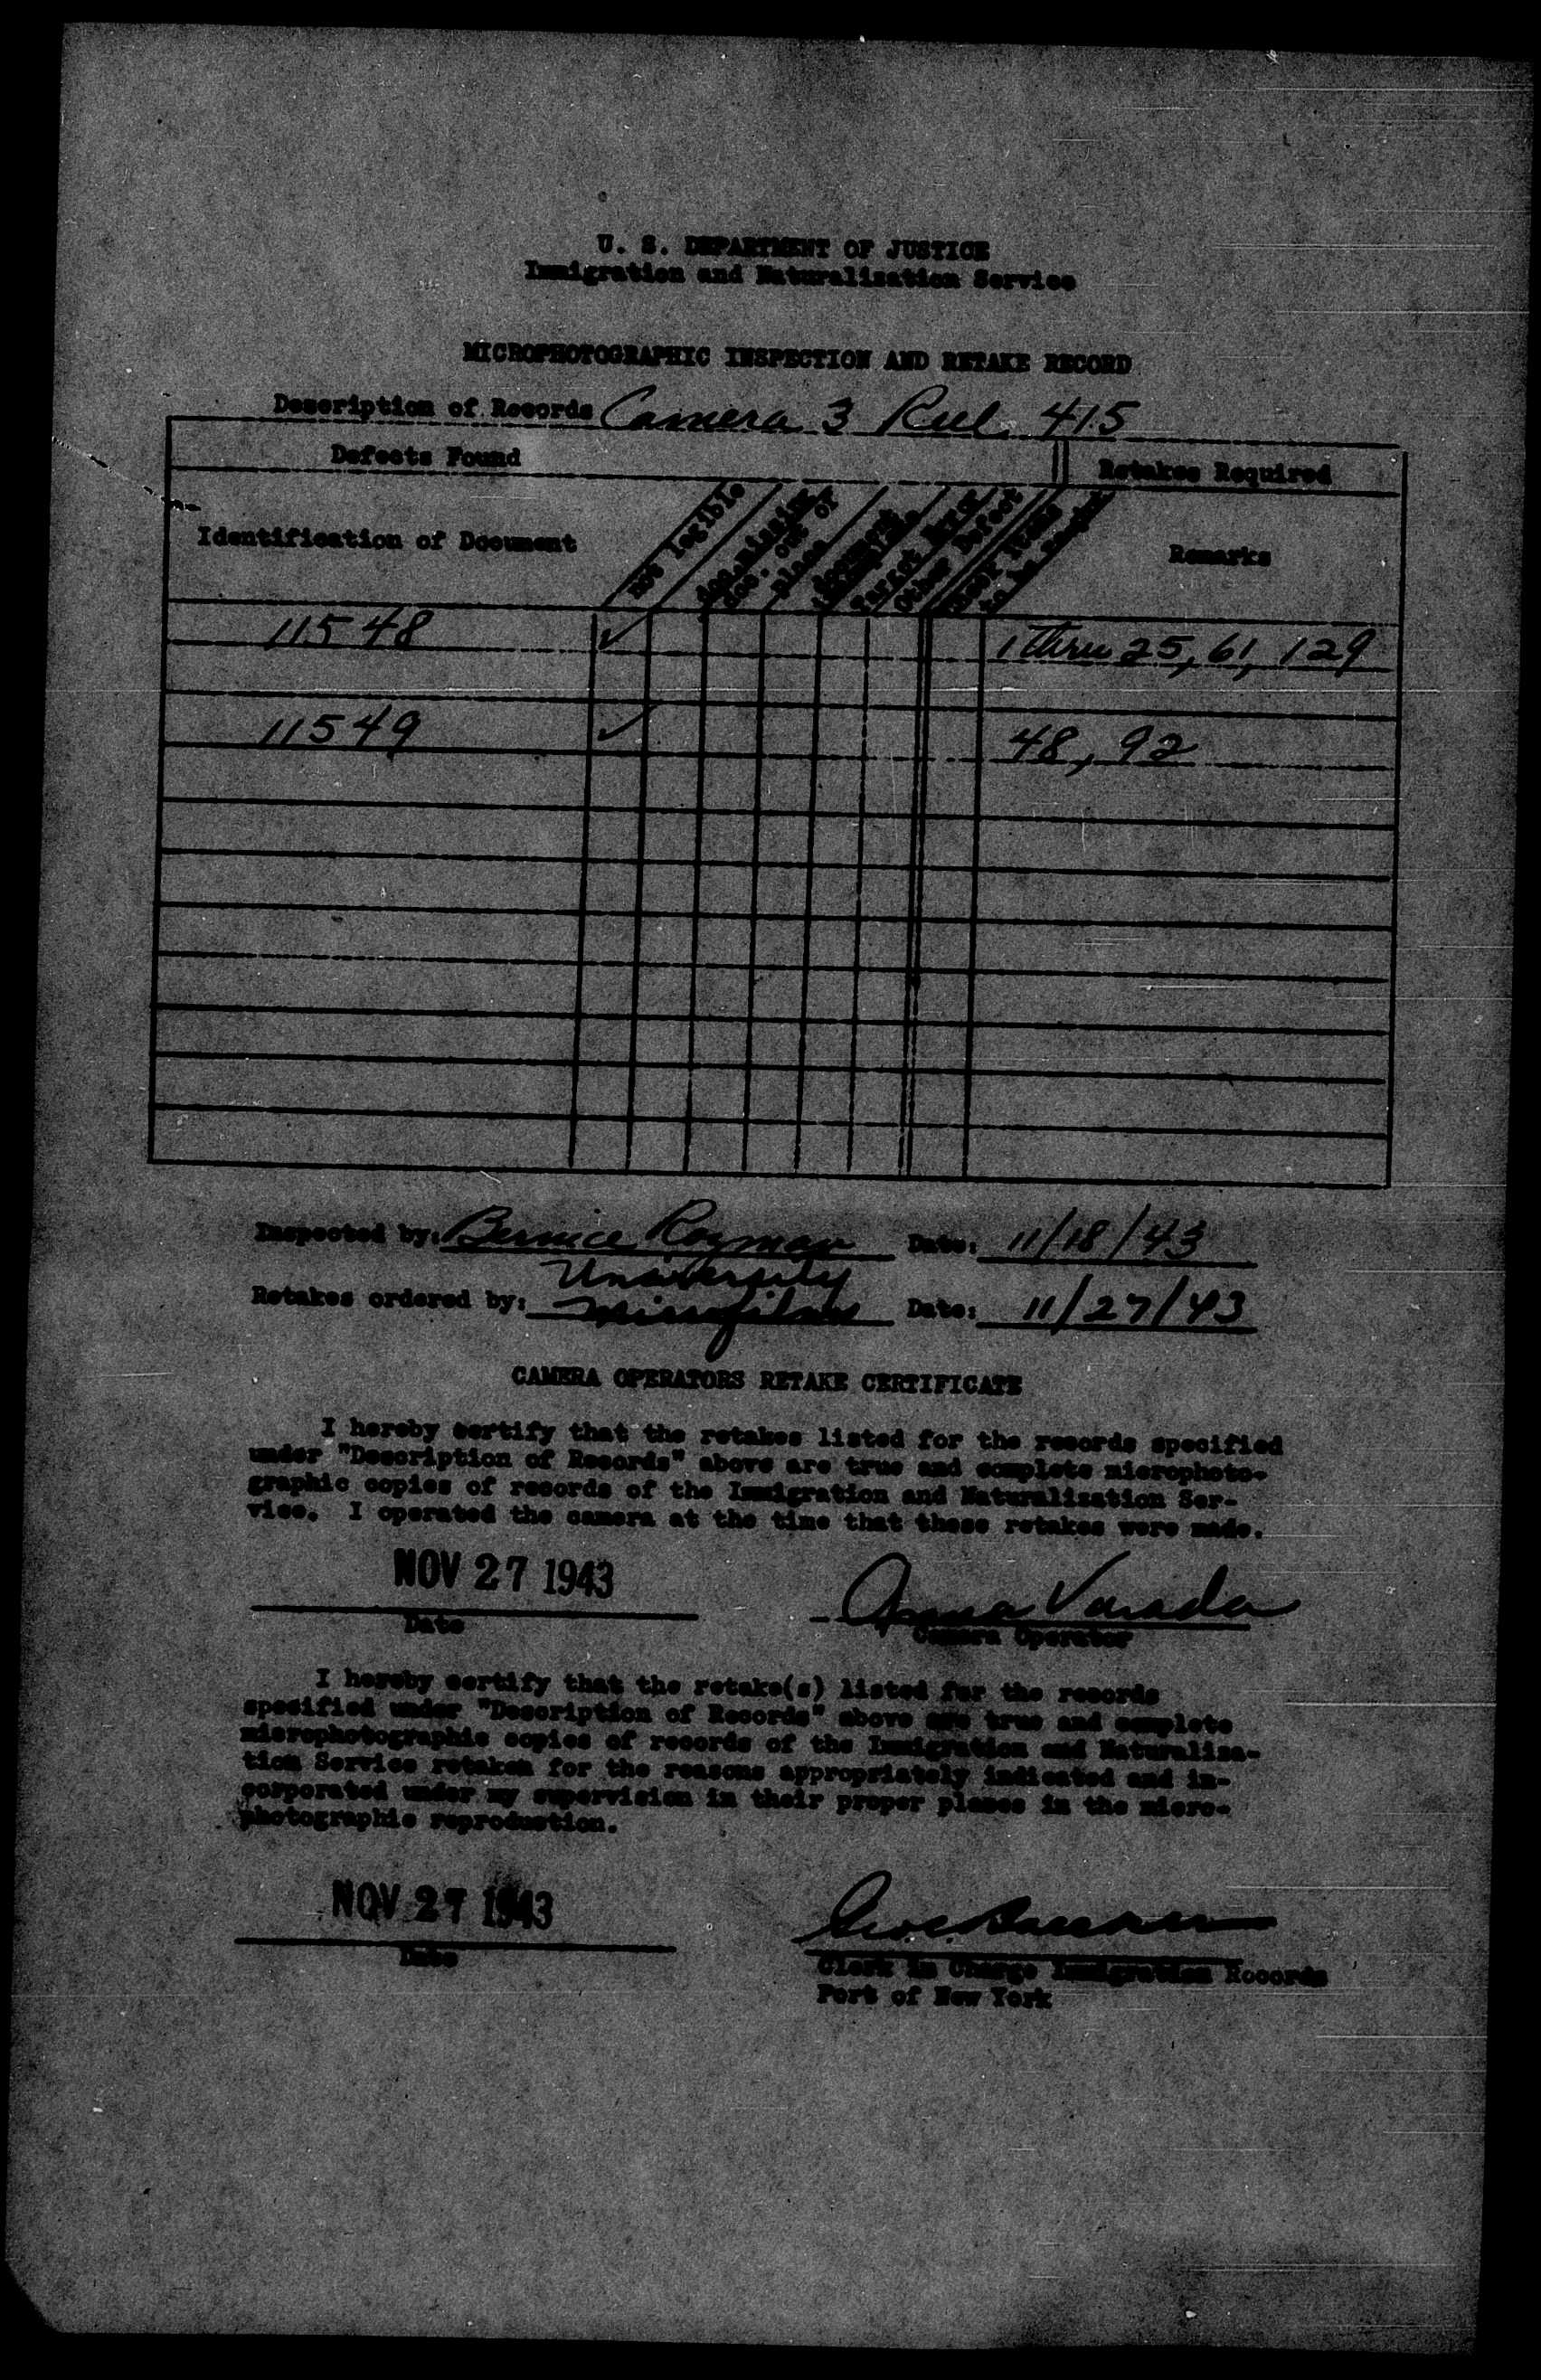 U. S. DEPARTMENT OF JUSTICE
Immigration and Naturalization Service
MICROPHOTOGRAPHIC INSPECTION AND RETAKE RECORD
Description of Records Camera 3 Reel 415
Defects Found Retakes Required
Identification of Document not legible doc. missing doc. out of place document Target Other Defect Remarks
11548 ✓ 1 thru 25, 61, 129
11549 ✓ 48, 92
Inspected by: Bernice Date: 11/18/43
University
Retakes ordered by: Microfilms Date: 11/27/43
CAMERA OPERATORS RETAKE CERTIFICATE
I hereby certify that the retakes listed for the records specified
under "Description of Records" above are true and complete microphoto-
graphic copies of records of the Immigration and Naturalization Ser-
vice. I operated the camera at the time that these retakes were made.
NOV 27 1943 Anna
Date Camera Operator
I hereby certify that the retake(s) listed for the records
specified under "Description of Records" above are true and complete
microphotographic copies of records of the Immigration and Naturaliza-
tion Service retaken for the reasons appropriately indicated and in-
corporated under my supervision in their proper places in the micro-
photographic reproduction.
NOV 27 1943
Date Clerk in Charge Immigration Records
Port of New York